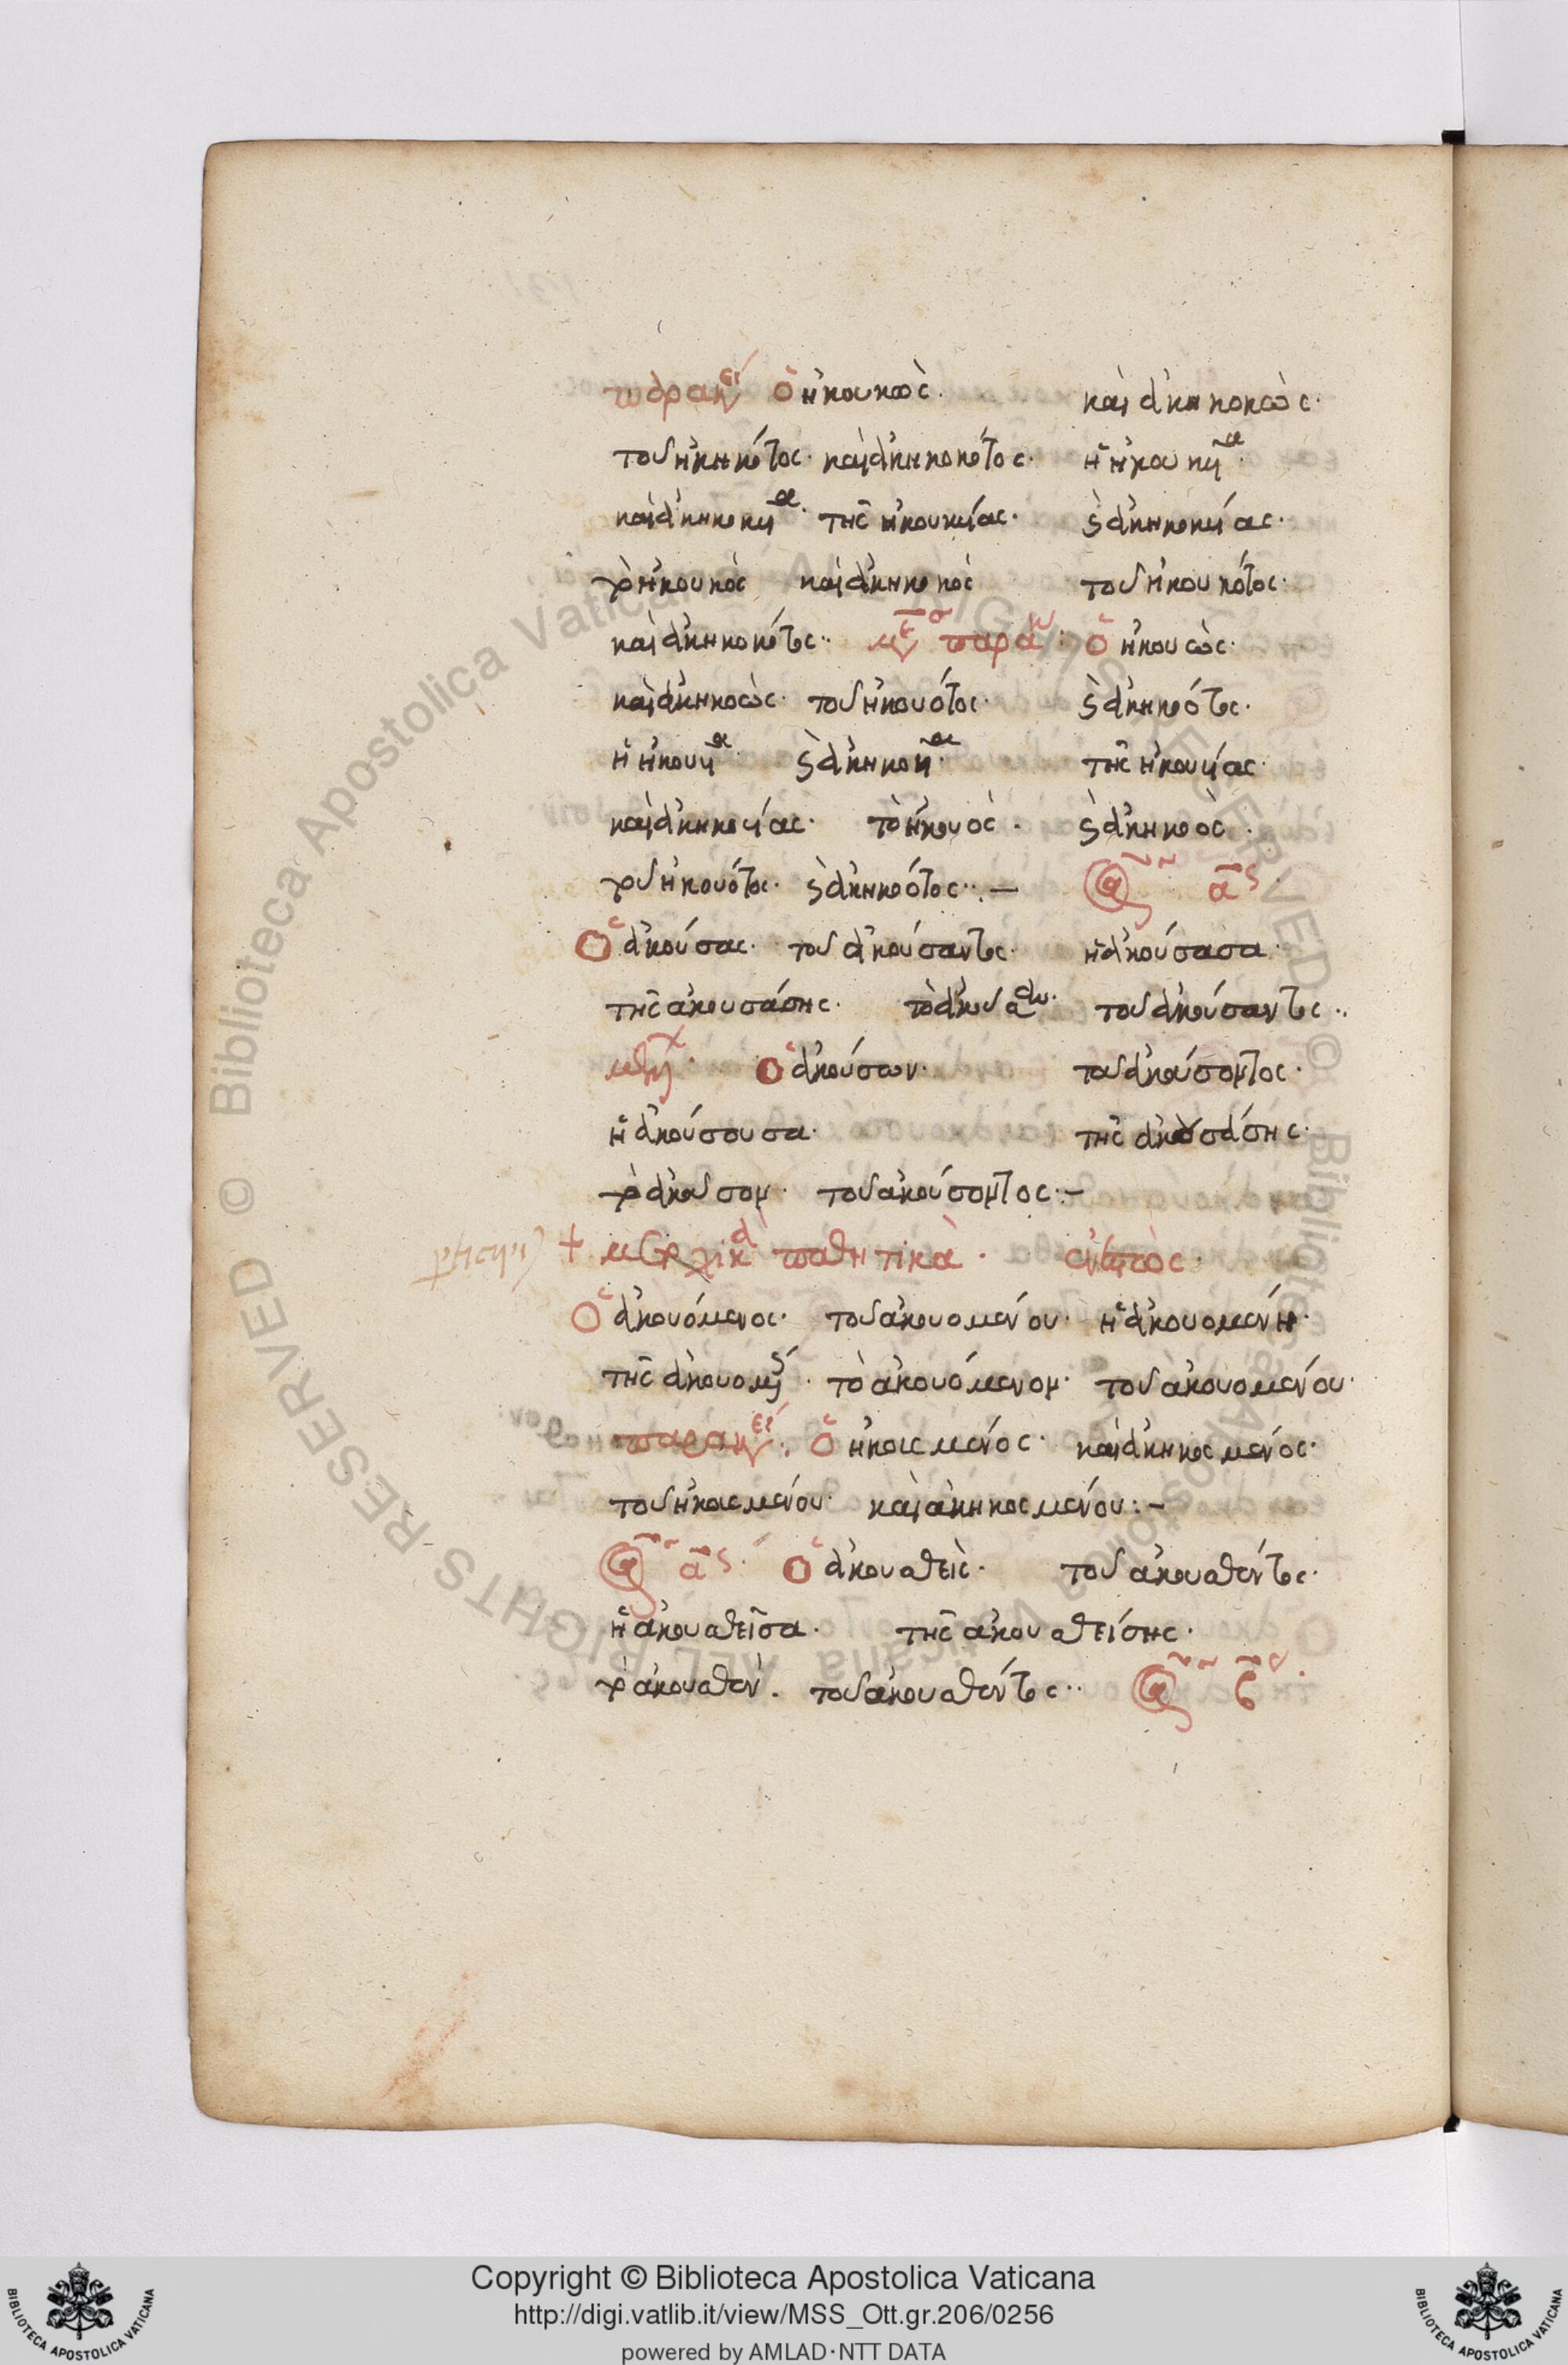 παρακει ὁ ἠκουκὼς· καὶ ἀκηκοκὼς·
τοῦ ἠκηκότος· καὶ ἀκηκοκότος· ἡ ἠκουκυῖα·
καὶ ἀκηκοκυῖα· τῆς ἠκουκυίας· ϛ ἀκηκοκυίας·
τὸ ἠκουκὸς καὶ ἀκηκοκὸς τοῦ ἠκουκότος·
καὶ ἀκηκοκότος·· με παρακ· ὁ ἠκουὼς·
καὶ ἀκηκοὼς· τοῦ ἠκουότος· ϛ ἀκηκοότος·
ἡ ἠκουῖα· ϛ ἀκηκουῖα· τῆς ἠκουίας·
καὶ ἀκηκουίας· τὸ ἠκουὸς· ϛ ἀκηκοὸς·
τοῦ ἠκουότος· ϛ ἀκηκοότος··— αϛ·
Ὁ ἀκούσας· τοῦ ἀκούσαντος· ἡ ἀκούσασα·
τῆς ἀκουσάσης· τὸ ἀκοῦσαν· τοῦ ἀκούσαντος··
μελλ· Ὁ ἀκούσων· τοῦ ἀκούσοντος·
ἡ ἀκούσουσα· τῆς ἀκουσάσης·
τὸ ἀκοῦσον· τοῦ ἀκούσοντος·—
+ μετοχικὰ παθητικὰ· ἐνεστὸς·
Ὁ ἀκουόμενος· τοῦ ἀκουομένου· ἡ ἀκουομένη·
τῆς ἀκουομένης· τὸ ἀκουόμενον· τοῦ ἀκουομένου·
παρακει· ὁ ἠκουσμένος· καὶ ἀκηκοσμένος·
τοῦ ἠκουσμένου· καὶ ἀκηκοσμένου:—
αϛ· Ὁ ἀκουσθεὶς· τοῦ ἀκουσθέντος·
ἡ ἀκουσθεῖσα· τῆς ἀκουσθείσης·
τὸ ἀκουσθέν· τοῦ ἀκουσθέντος·· β·
Copyright © Biblioteca Apostolica Vaticana
http://digi.vatlib.it/view/MSS_Ott.gr.206/0256
powered by AMLAD·NTT DATA
BIBLIOTECA APOSTOLICA VATICANA
BIBLIOTECA APOSTOLICA VATICANA
© Biblioteca Apostolica Vaticana ALL RIGHTS RESERVED
© Biblioteca Apostolica Vaticana ALL RIGHTS RESERVED